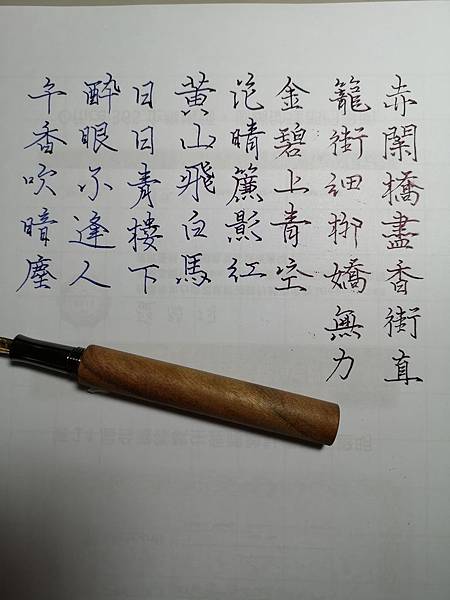 赤闌橋盡香街直
籠街細柳嬌無力
金碧上青空
花晴簾影紅
黃山飛白馬
日日青樓下
醉眼不逢人
午香吹暗塵